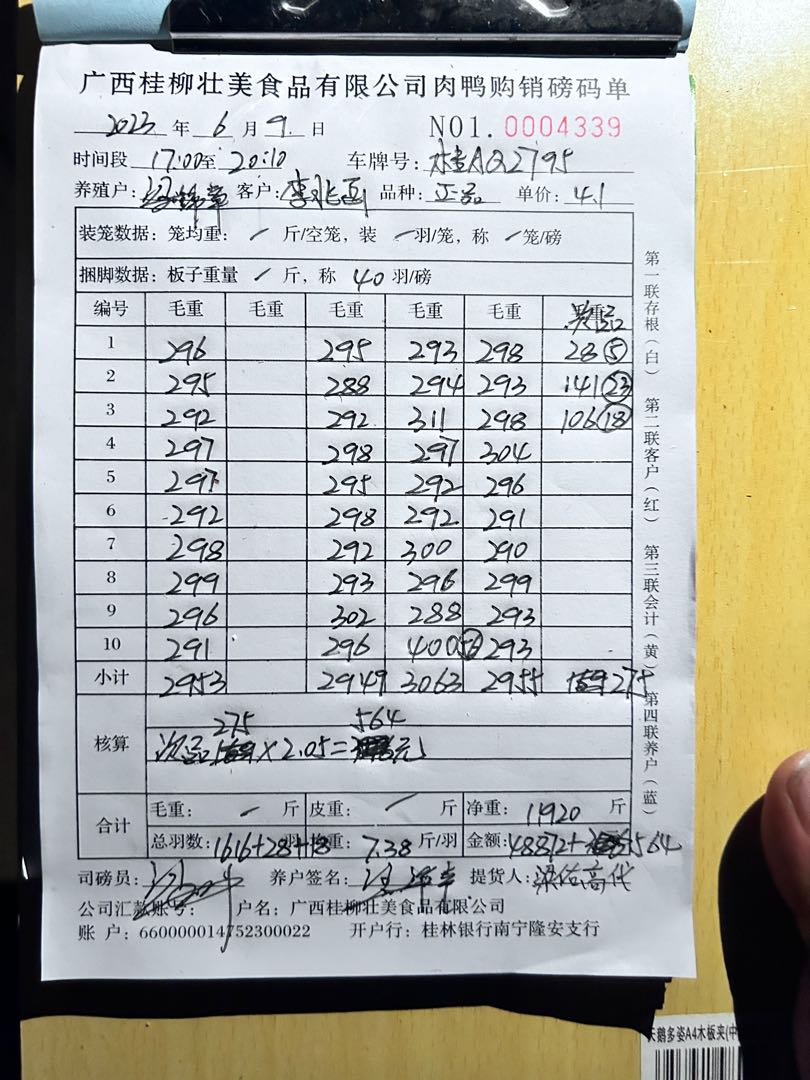 广西桂柳壮美食品有限公司肉鸭购销磅码单
2023 年 6 月 9 日 NO1. 0004339
时间段 17:00至 20:10 车牌号: 桂AQ2795
养殖户: 客户: 品种: 正品 单价: 4.1
装笼数据: 笼均重: / 斤/空笼, 装 / 羽/笼, 称 / 笼/磅
捆脚数据: 板子重量 / 斤, 称 40 羽/磅
编号 毛重 毛重 毛重 毛重 毛重
1 296 295 293 298 28 ⑤
2 295 288 294 293 141 ㉓
3 292 292 311 298 106 ⑱
4 297 298 297 304
5 297 295 292 296
6 292 298 292 291
7 298 292 300 290
8 299 293 296 299
9 296 302 288 293
10 291 296 400 293
小计 2953 2949 3063 2955 275
核算 275 564
次品 × 2.05 = 元
合计 毛重: / 斤 皮重: / 斤 净重: 11920 斤
总羽数: 1616+28+18 羽 均重: 7.38 斤/羽 金额: 48872+ 564
司磅员: 养户签名: 提货人: 梁佑高代
公司汇款账号: 户名: 广西桂柳壮美食品有限公司
账 户: 660000014752300022 开户行: 桂林银行南宁隆安支行
第一联存根(白) 第二联客户(红) 第三联会计(黄) 第四联养户(蓝)
天鹅多姿A4木板夹(中